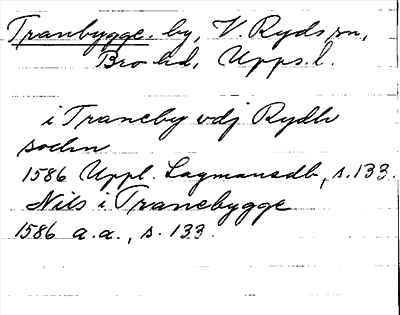 Tranbygge. by, V. Ryds sn,
Bro hd, Upps. l.
i Traneby vdj Rydh
sochn
1586 Uppl. Lagmansdb, s. 133.
Nils i Tranebygge
1586 a.a., s. 133.